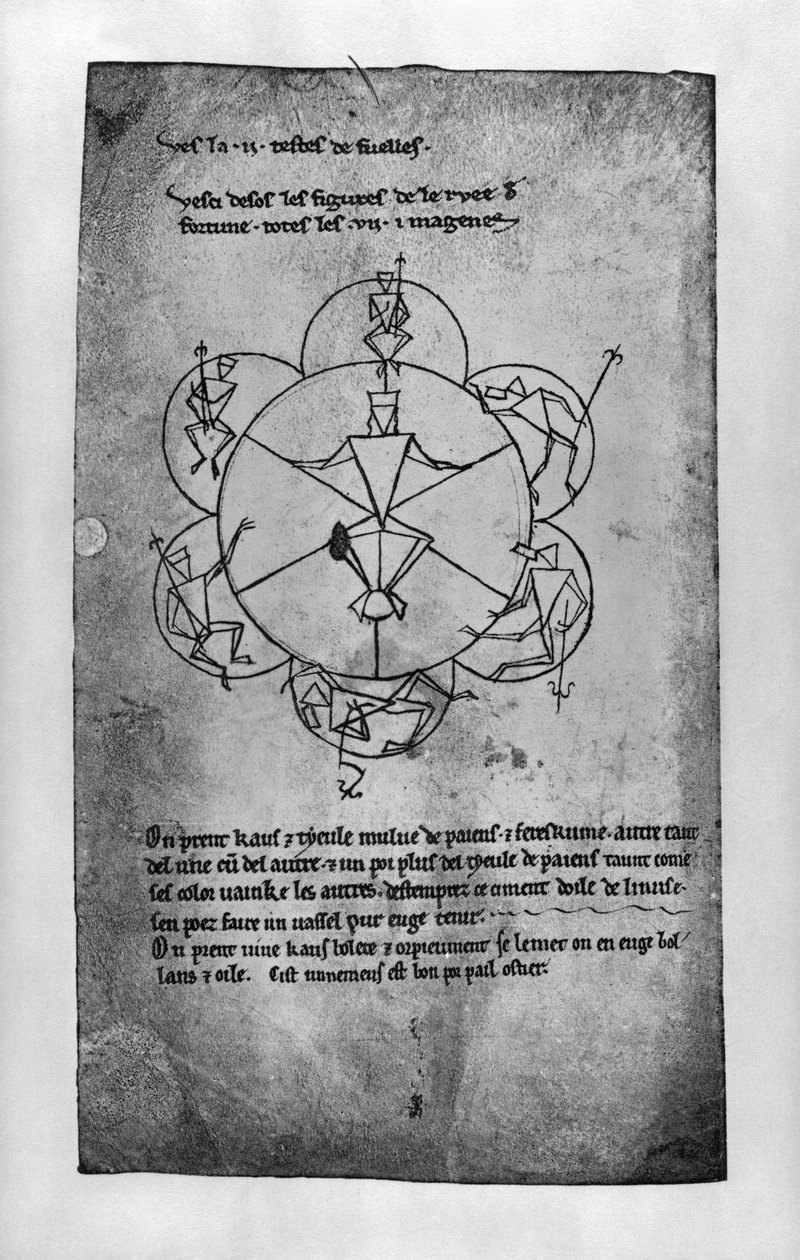 Ves la .ij. testes de fuelles.
Vesci desos les figures de le ruee d
fortune . totes les .vij. imagenes
On prent kaus ⁊ tyeule mulue de paiens . ⁊ autre tant
del une cū del autre . ⁊ un poi plus del tyeule de paiens taunt come
ses color vainke les autres . destemprez ce ciment doile de linuise .
sen poez faire un vassel pur euge tenir .
On prent vive kaus bolete ⁊ orpieument se lemet on en euge bol
lans ⁊ oile . Cist unnemens est bon por pail oster .